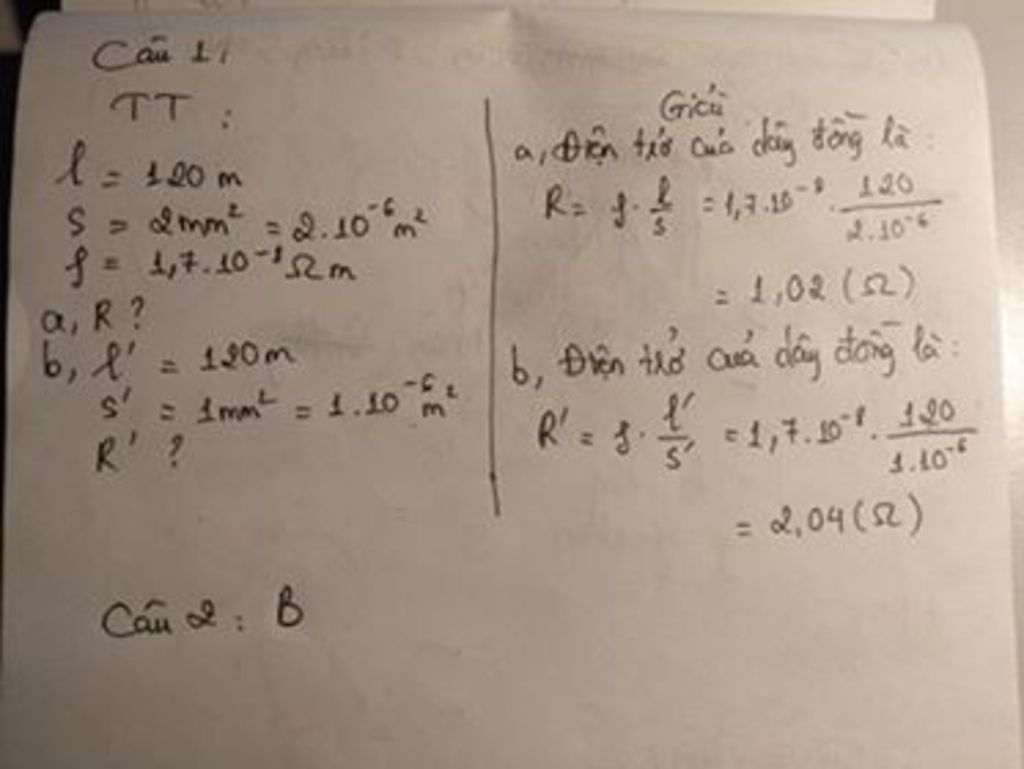 Câu 1/
TT:
l = 120 m
S = 2mm² = 2.10⁻⁶m²
ρ = 1,7.10⁻⁸Ωm
a, R?
b, l' = 120m
S' = 1mm² = 1.10⁻⁶m²
R' ?
Giải
a, Điện trở của dây đồng là:
R = ρ · l/S = 1,7.10⁻⁸ · 120/2.10⁻⁶
= 1,02 (Ω)
b, Điện trở của dây đồng là:
R' = ρ · l'/S' = 1,7.10⁻⁸ · 120/1.10⁻⁶
= 2,04 (Ω)
Câu 2: B